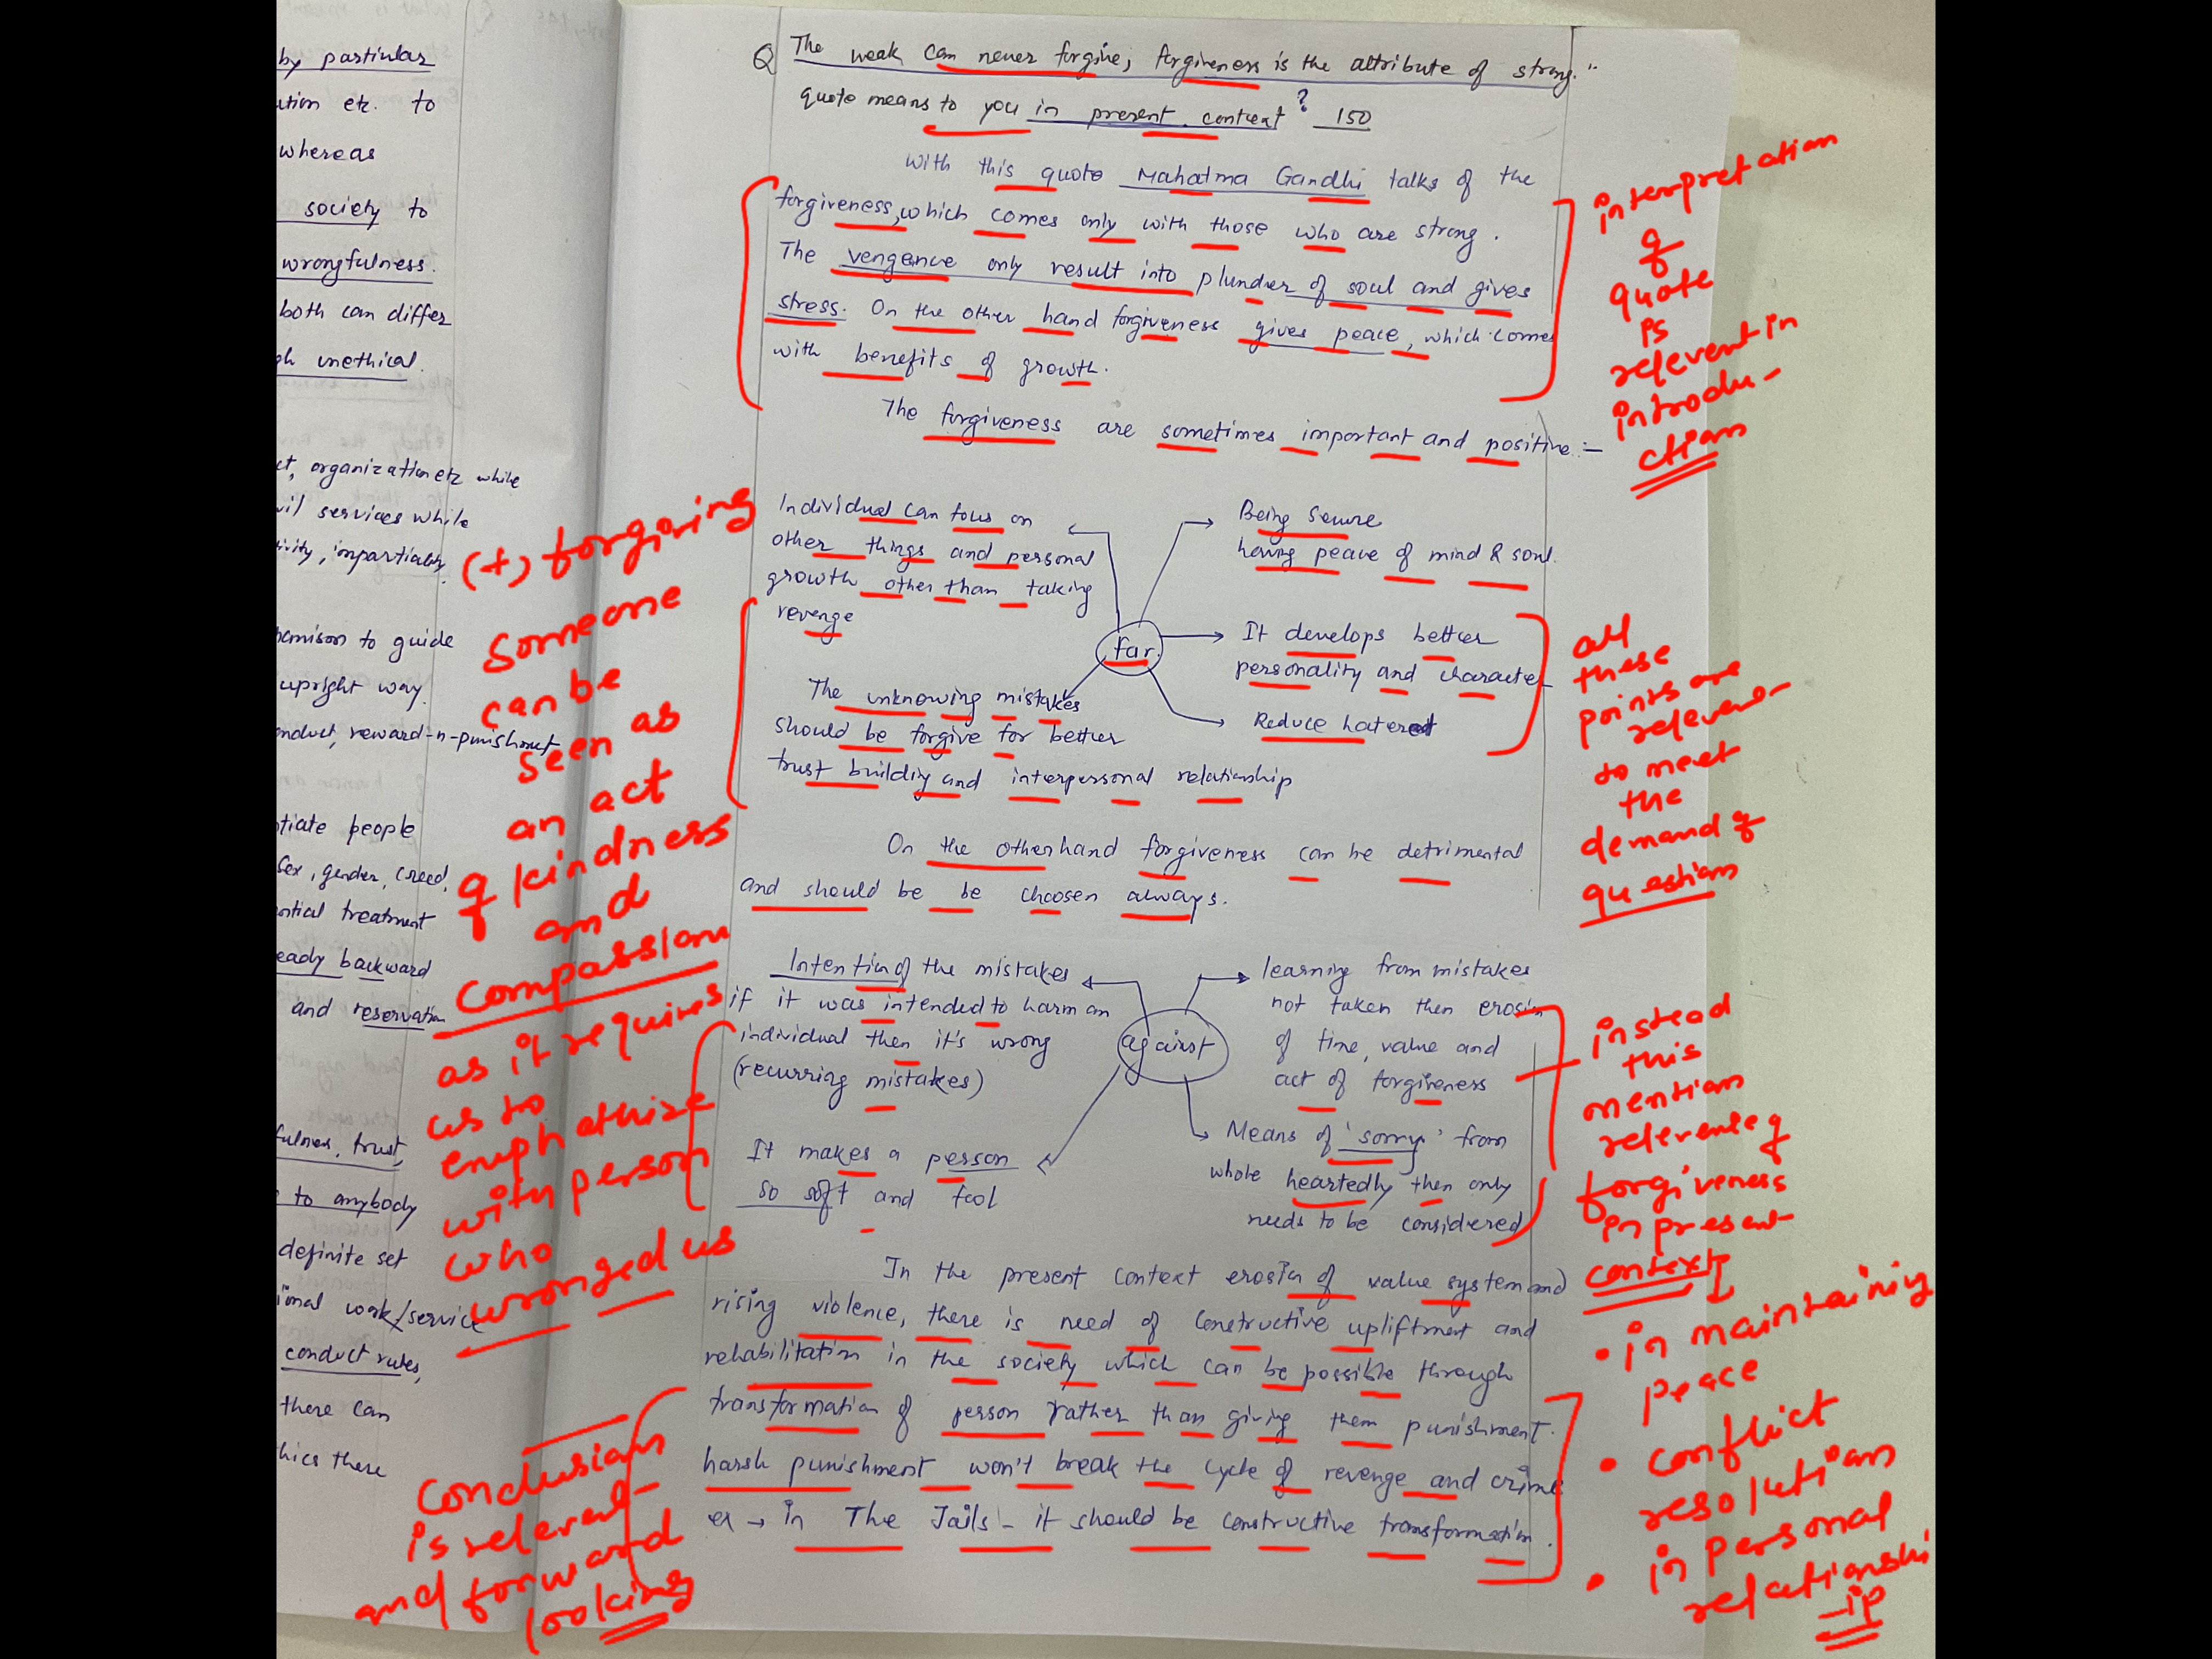 by particular
etc. to
whereas
society to
wrongfulness.
both can differ
unethical.
organization etc while
services while
impartiality
to guide
upright way.
reward-n-punishment
people
sex, gender, creed,
treatment
backward
and reservation
trust,
to anybody
definite set
work/service
conduct rules,
there can
there
Q The weak can never forgive; forgiveness is the attribute of strong."
quote means to you in present context? 150
With this quote Mahatma Gandhi talks of the
forgiveness, which comes only with those who are strong.
The vengence only result into plunder of soul and gives
stress. On the other hand forgiveness gives peace, which comes
with benefits of growth.
The forgiveness are sometimes important and positive :-
Individual can focus on
other things and personal
growth other than taking
revenge
Being secure
having peace of mind & soul.
far.
It develops better
personality and character
Reduce hatered
The unknowing mistakes
should be forgive for better
trust building and interpersonal relationship
On the otherhand forgiveness can be detrimental
and should be be choosen always.
Intention of the mistakes
if it was intended to harm an
individual then it's wrong
(recurring mistakes)
learning from mistakes
not taken then erosion
of time, value and
act of forgiveness
against
It makes a person
so soft and fool
Means of 'sorry' from
whole heartedly then only
needs to be considered
In the present context erosion of value system and
rising violence, there is need of constructive upliftment and
rehabilitation in the society which can be possible through
transformation of person rather than giving them punishment.
harsh punishment won't break the cycle of revenge and crime
ex → in The Jails - it should be constructive transformation.
interpretation
of
quote
is
relevent in
introdu-
ction
(+) forgiving
someone
can be
seen as
an act
of kindness
and
compassion
as it requires
us to
emphathize
with person
who
wronged us
all
these
points are
relevent
to meet
the
demand of
question
instead
this
mention
relevence of
forgiveness
in present
context
• in maintaining
peace
• conflict
resolution
• in personal
relationshi
-ip
conclusion
is relevent
and forward
looking